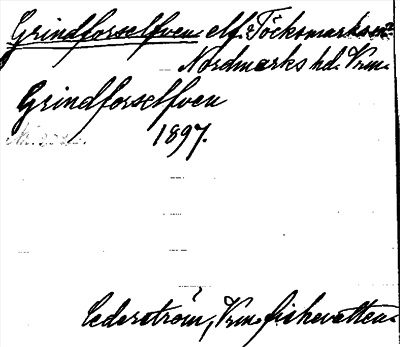 Grindforselfven elf. Töcksmarks sn
Nordmarks hd. Vrm.
Grindforselfven
1897.
Cederström, Vrm. fiskevatten.